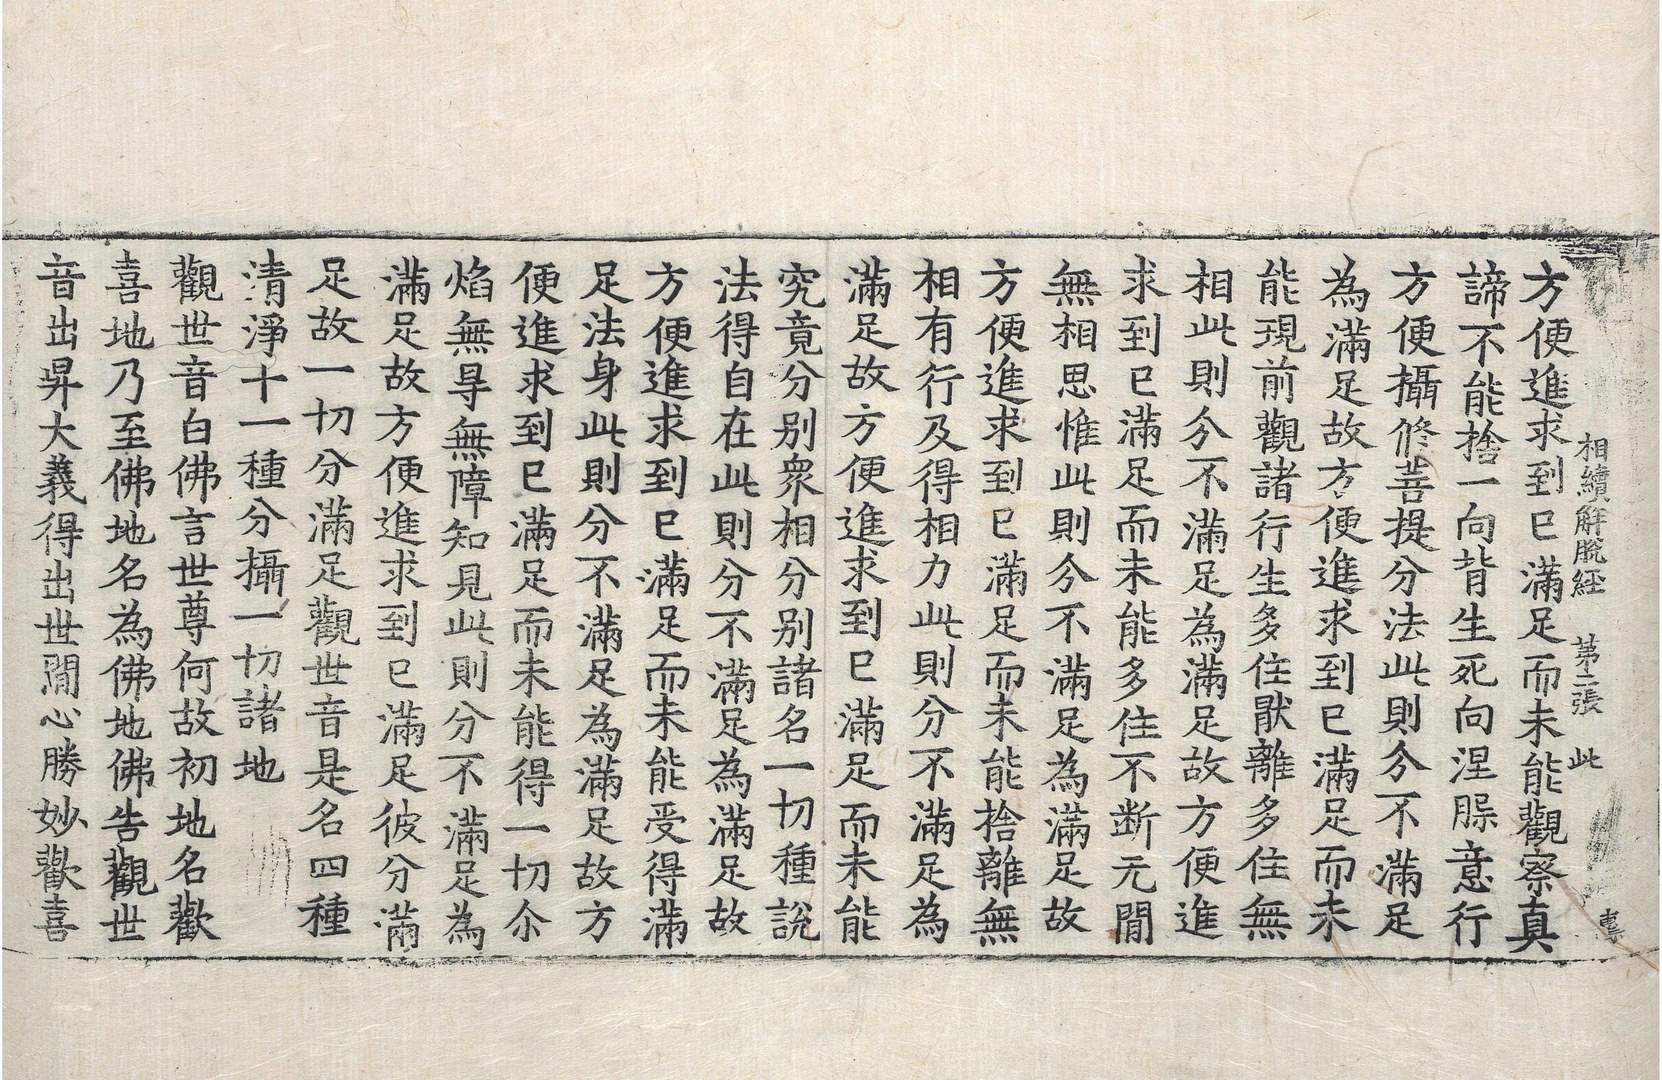 相續解脫經　第二張　此
方便進求到已滿足而未能觀察真
諦不能捨一向背生死向涅槃意行
方便攝修菩提分法此則分不滿足
為滿足故方便進求到已滿足而未
能現前觀諸行生多住厭離多住無
相此則分不滿足為滿足故方便進
求到已滿足而未能多住不斷无閒
無相思惟此則分不滿足為滿足故
方便進求到已滿足而未能捨離無
相有行及得相力此則分不滿足為
滿足故方便進求到已滿足而未能
究竟分別眾相分別諸名一切種說
法得自在此則分不滿足為滿足故
方便進求到已滿足而未能受得滿
足法身此則分不滿足為滿足故方
便進求到已滿足而未能得一切尒
焰無㝵無障知見此則分不滿足為
滿足故方便進求到已滿足彼分滿
足故一切分滿足觀世音是名四種
清淨十一種分攝一切諸地
觀世音白佛言世尊何故初地名歡
喜地乃至佛地名為佛地佛告觀世
音出昇大義得出世閒心勝妙歡喜